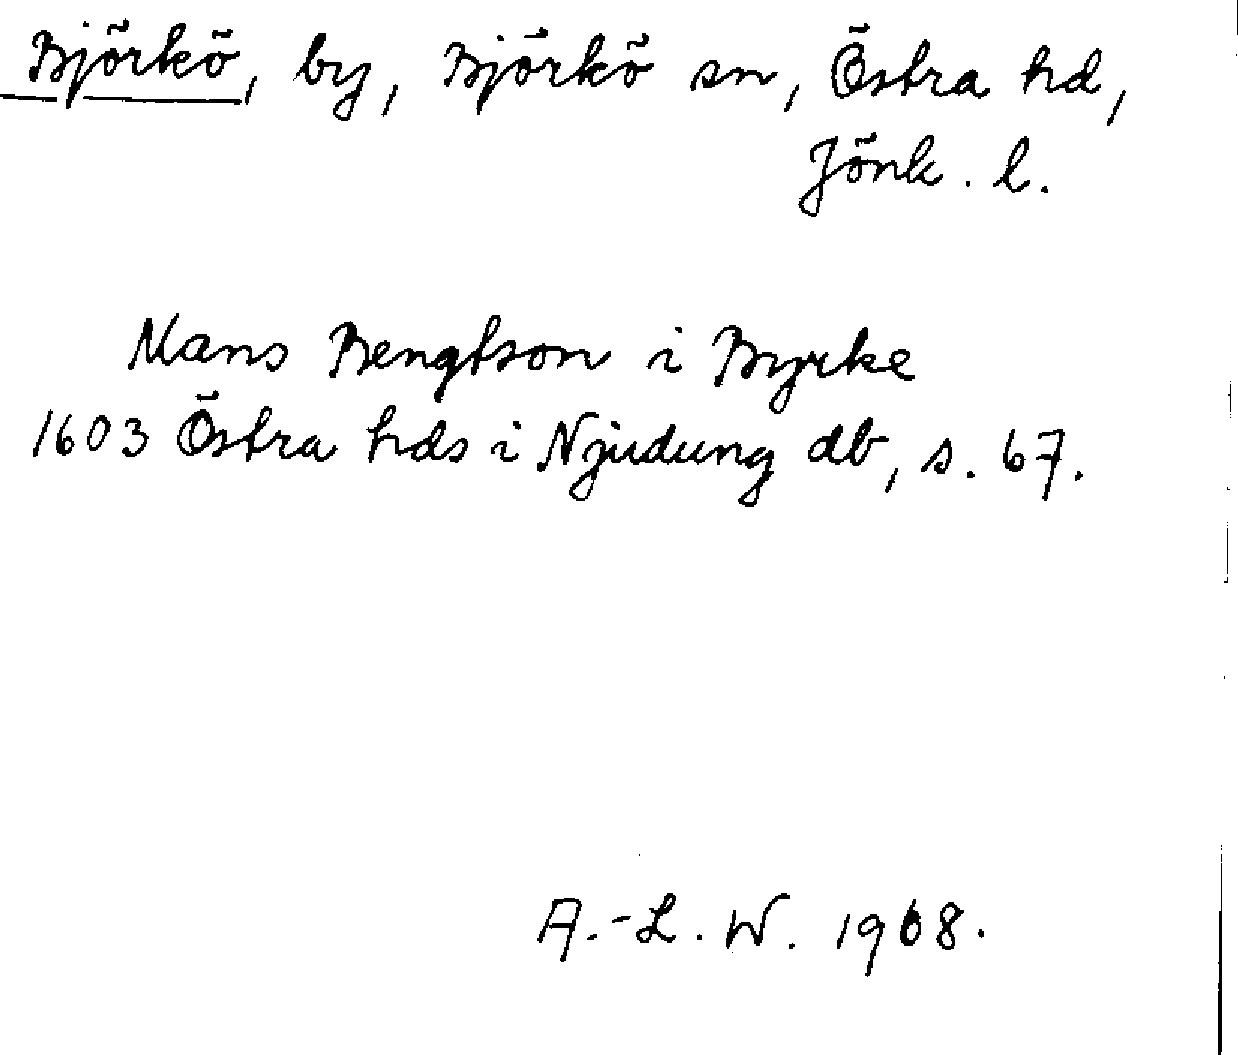 Björkö, by, Björkö sn, Östra hd,
Jönk. l.
Mans Bengtson i Byrke
1603 Östra hds i Njudung db, s. 67.
A.-L. W. 1968.